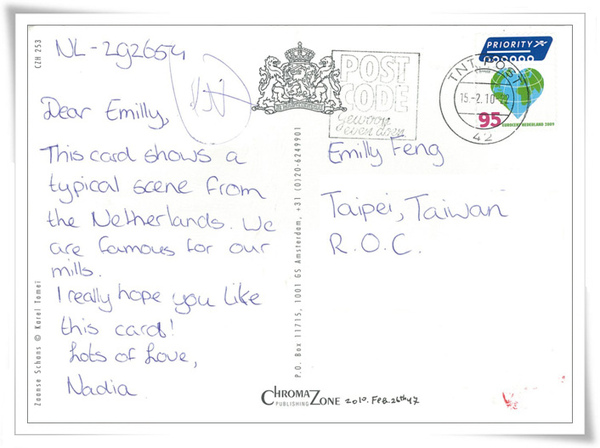 NL-292654
Dear Emilly,
This card shows a
typical scene from
the Netherlands. We
are famous for our
mills.
I really hope you like
this card!
Lots of Love,
Nadia
CZH 253
Zaanse Schans © Karel Tomeï
P.O. Box 11715, 1001 GS Amsterdam, +31 (0)20-6249901
POST
CODE
Gewoon
even doen
PRIORITY
TNT POST
15-2.10
42
95
NEDERLAND 2009
Emilly Feng
Taipei, Taiwan
R.O.C.
CHROMAZONE
PUBLISHING
2010. Feb. 26th